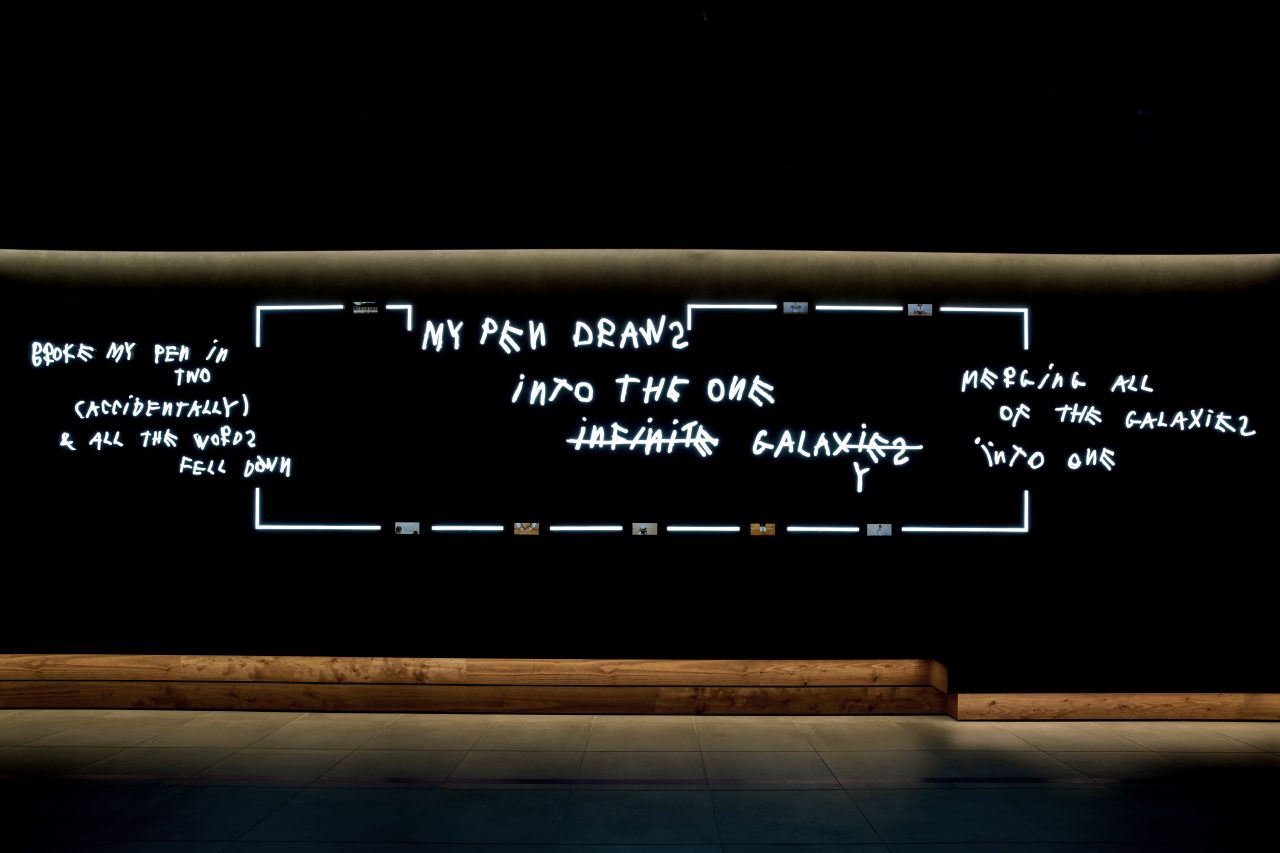 BROKE MY PEN iN
TWO
(ACCiDENTALLY)
& ALL THE WORDS
FELL DOWN
MY PEN DRAWS
iNTO THE ONE
iNFiNiTE GALAXiES
Y
MERGiNG ALL
OF THE GALAXiES
iNTO ONE